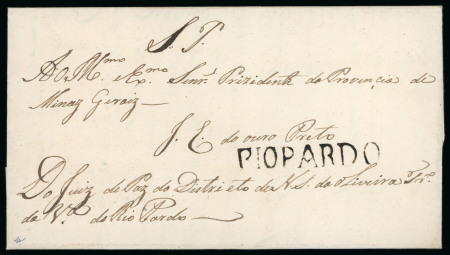 S. P.
Ao Illmo Exmo Senr. Prizidente da Provincia de
Minaz Geraiz
I. C. do ouro Preto
RIOPARDO
Do Juiz de Paz do Distrieto de N. S. da Oliveira Tr.o
da V.a do Rio Pardo